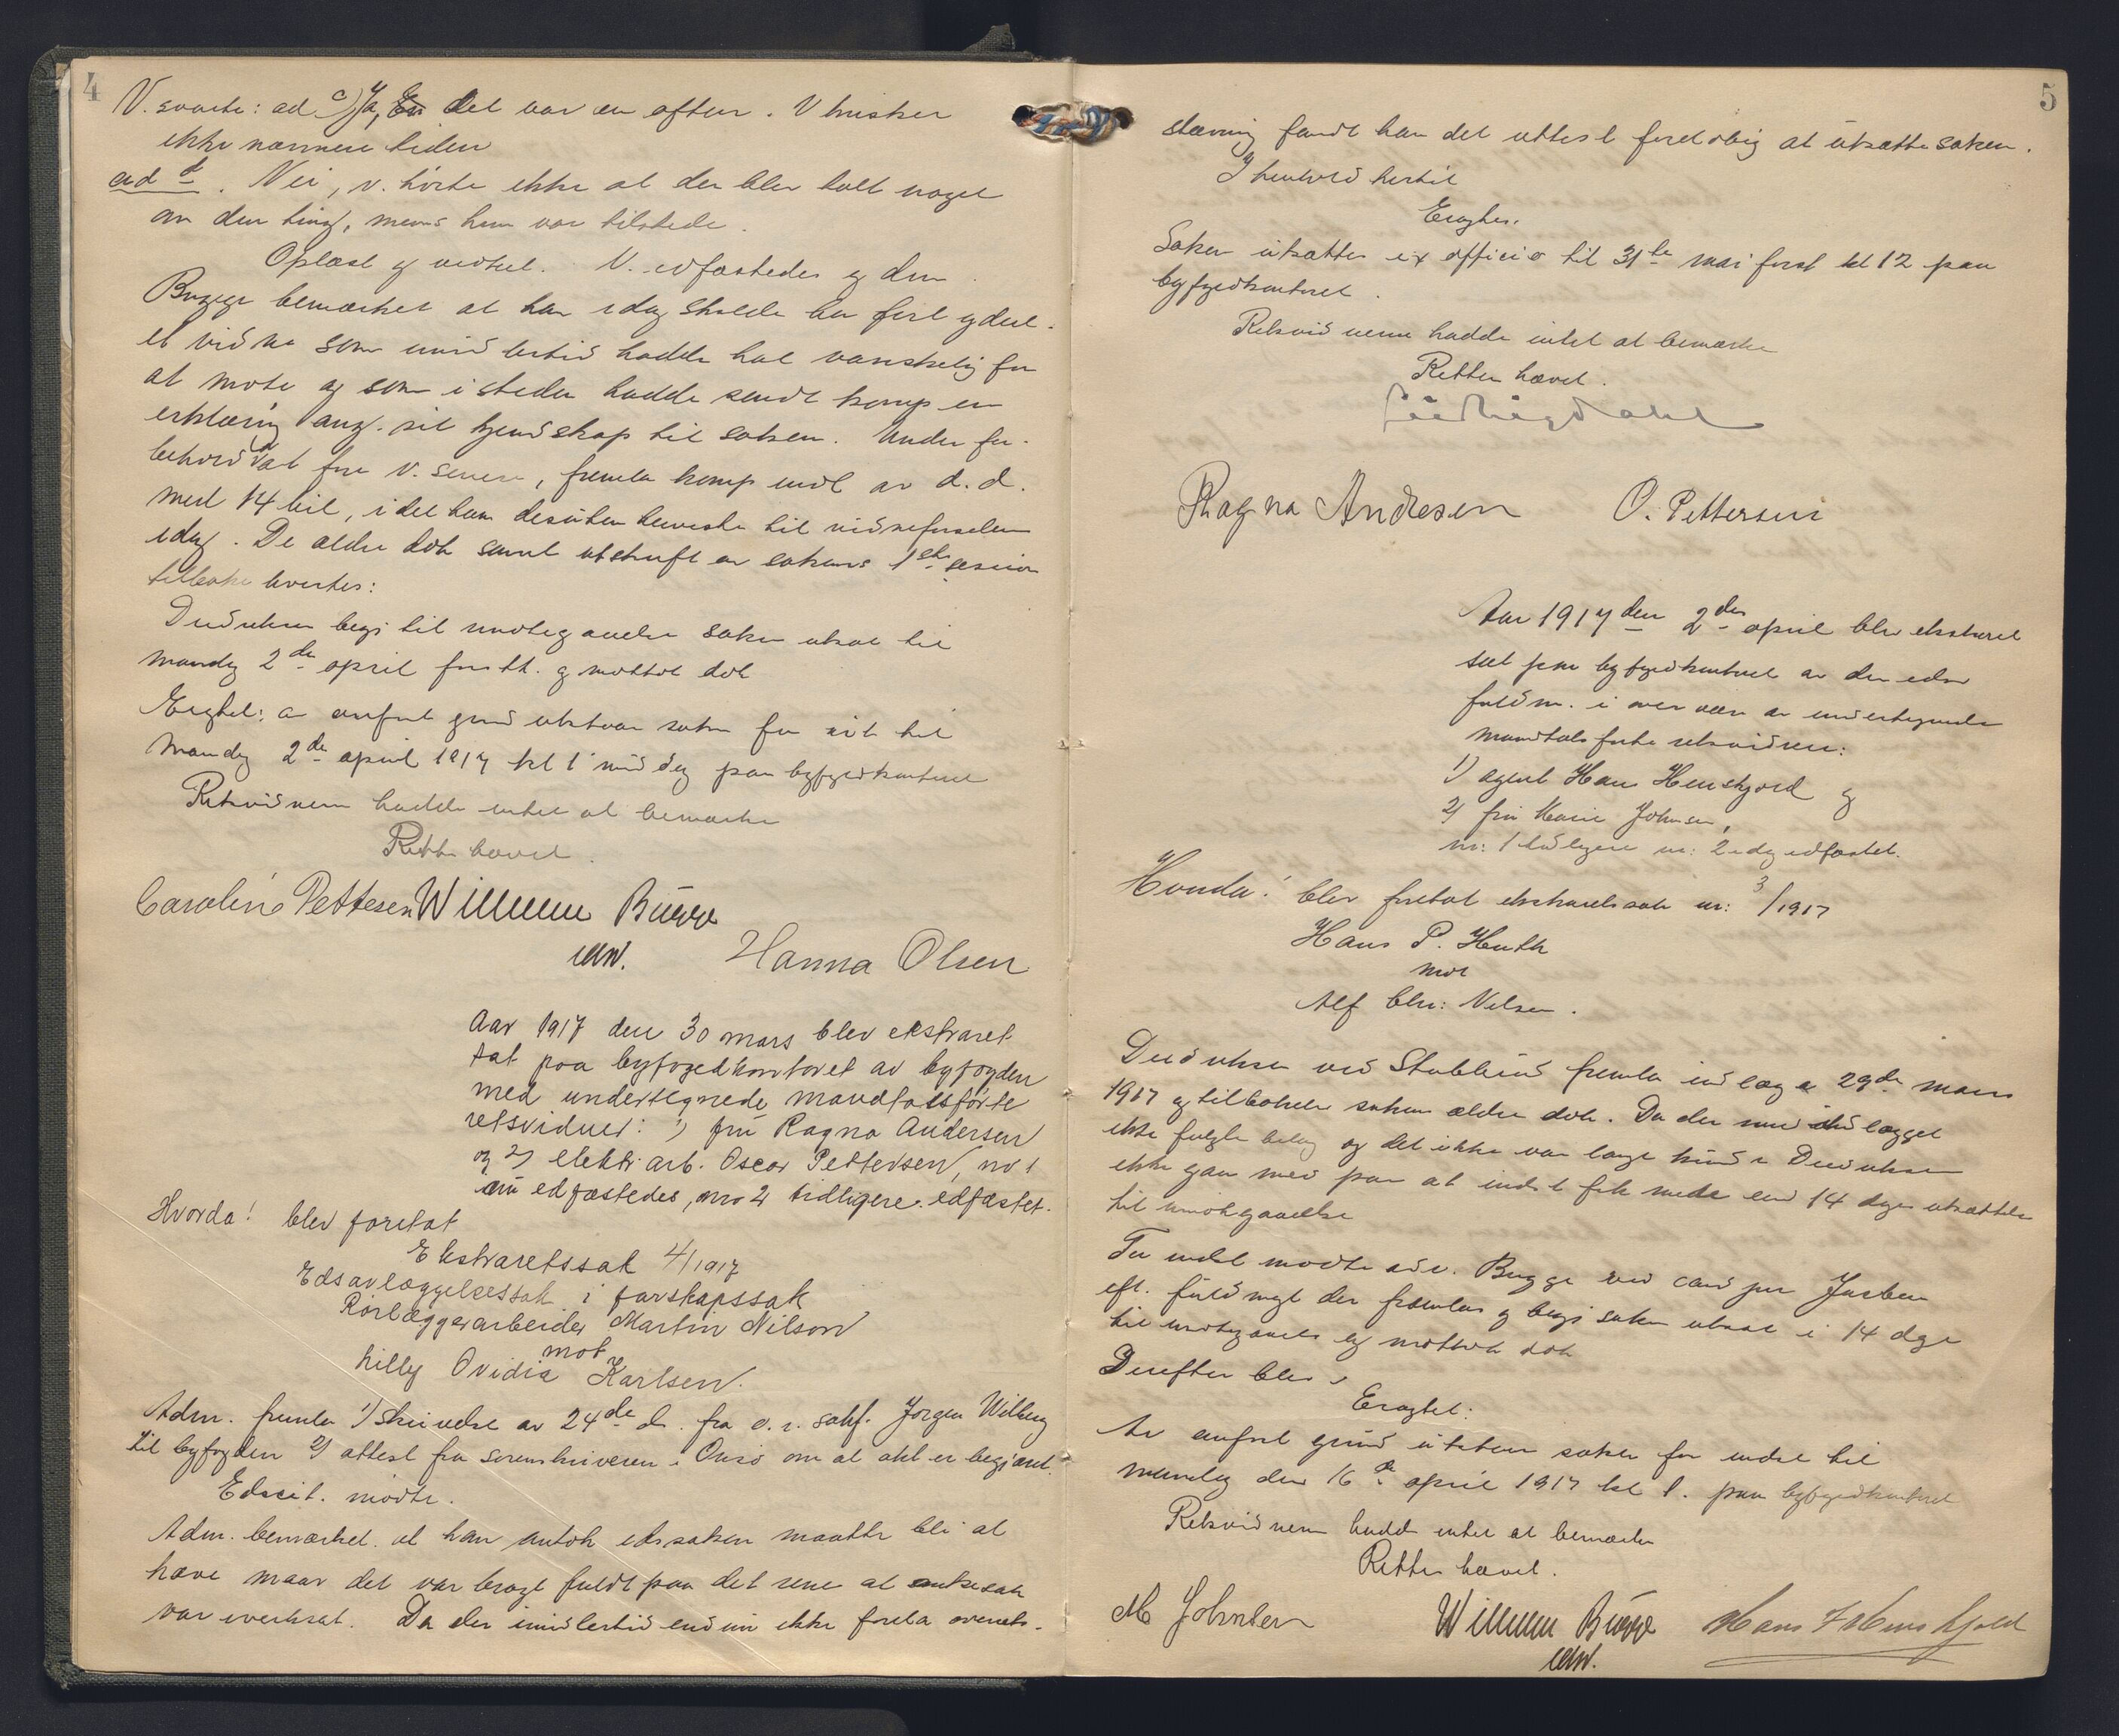 4
V. svarte: ad c) Ja, En det var en aften. V husker
ikke nærmere tiden
ad d. Nei, v. hørte ikke at der blev talt noget
om den ting, mens hun var tilstede.
Oplæst og vedtat. V. edfæstedes og dim
Bugge bemærket at han idag skulde ha ført yderl.
et vidne som imidlertid hadde hat vanskelig for
at møte og som isteden hadde sendt komp en
erklæring ang. sit kjendskap til saken. Under for-
behold at føre v. senere, fremla komp indl av d.d.
med 14 bil, idet han desuten henviste til vidneførselen
idag. De ældre dok samt utskrift av sakens 1ste session
tilbakelevertes:
Duduksen begj til imøtegaaelse saken utsat til
mandag 2de april førstk. og mottok dok
Eragtet: av anført grund utstaar saken for sit til
Mandag 2de april 1917 kl 1 middag paa byfogedkontoret
Retsvidnerne hadde intet at bemærke
Retten hævet.
Caroline Pettersen Willum Bugge
const. Hanna Olsen
Aar 1917 den 30 mars blev ekstraret
sat paa byfogedkontoret av byfogden
med undertegnede mandtalsførte
retsvidner: 1) fru Ragna Andersen
og 2) elektr. arb. Oscar Pettersen, nr 1
nu edfæstedes, nr 2 tidligere edfæstet.
Hvorda! blev foretat
Ekstraretssak 4/1917
Edsavlæggelsessak i farskapssak
Rørlæggerarbeider Martin Nilsen
mot
Lilly Ovidia Karlsen.
Adm. fremla 1) skrivelse av 24de ds. fra o.r. sakf. Jørgen Wilberg
til byfogden 2) attest fra sorenskriveren i Onsø om at akt er begjæret.
Edscit. møtte.
Adm. bemærket at han antok edssaken maatte bli at
hæve naar det var bragt fuldt paa det rene at ankesak
var iverksat. Da der imidlertid endnu ikke forela overrets-
5
stævning fandt han det rettest foreløbig at utsætte saken.
I henhold hertil
Eragtes.
Saken utsættes ex officio til 31te mai førstk kl 12 paa
byfogedkontoret.
Retsvidnerne hadde intet at bemærke
Retten hævet.
Ragna Andresen O. Pettersen
Aar 1917 den 2den april blev ekstraret
sat paa byfogedkontoret av den edsv
fuldm. i overvær av undertegnede
mandtalsførte retsvidner:
1) agent Hans Henskjold og
2) fru Marie Johnsen,
nr: 1 tidligere nr: 2 idag edfæstet.
Hvorda! blev foretat ekstraretssak nr: 3/1917
Hans P. Huth
mot
Alf Chr: Nilsen.
Duduksen ved Stabblund fremla indlæg av 29de mars
1917 og tilbakelev saken ældre dok. Da der med indlægget
ikke fulgte bilag og det ikke var langt kunde Duduksen
ikke gaa med paa at indst fik mere end 14 dages utsættelse
til imøtegaaelse
For indst møtte adv. Bugge ved cand jur Jusben
eft. fuldmagt der fremlas og begj saken utsat i 14 dage
til imøtegaaelse og mottok dok
Derefter blev
Eragtet:
Av anført grund utstaar saken for indst til
mandag den 16de april 1917 kl 1. paa byfogedkontoret
Retsvidnerne hadde intet at bemærke
Retten hævet.
M Johnsen Willum Bugge Hans Henskjold
const.